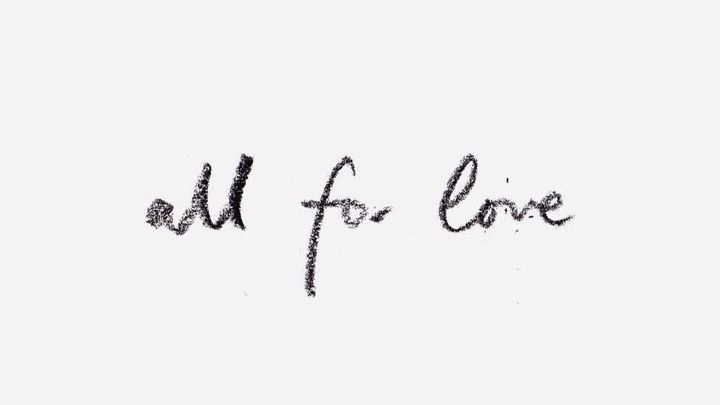 all for love